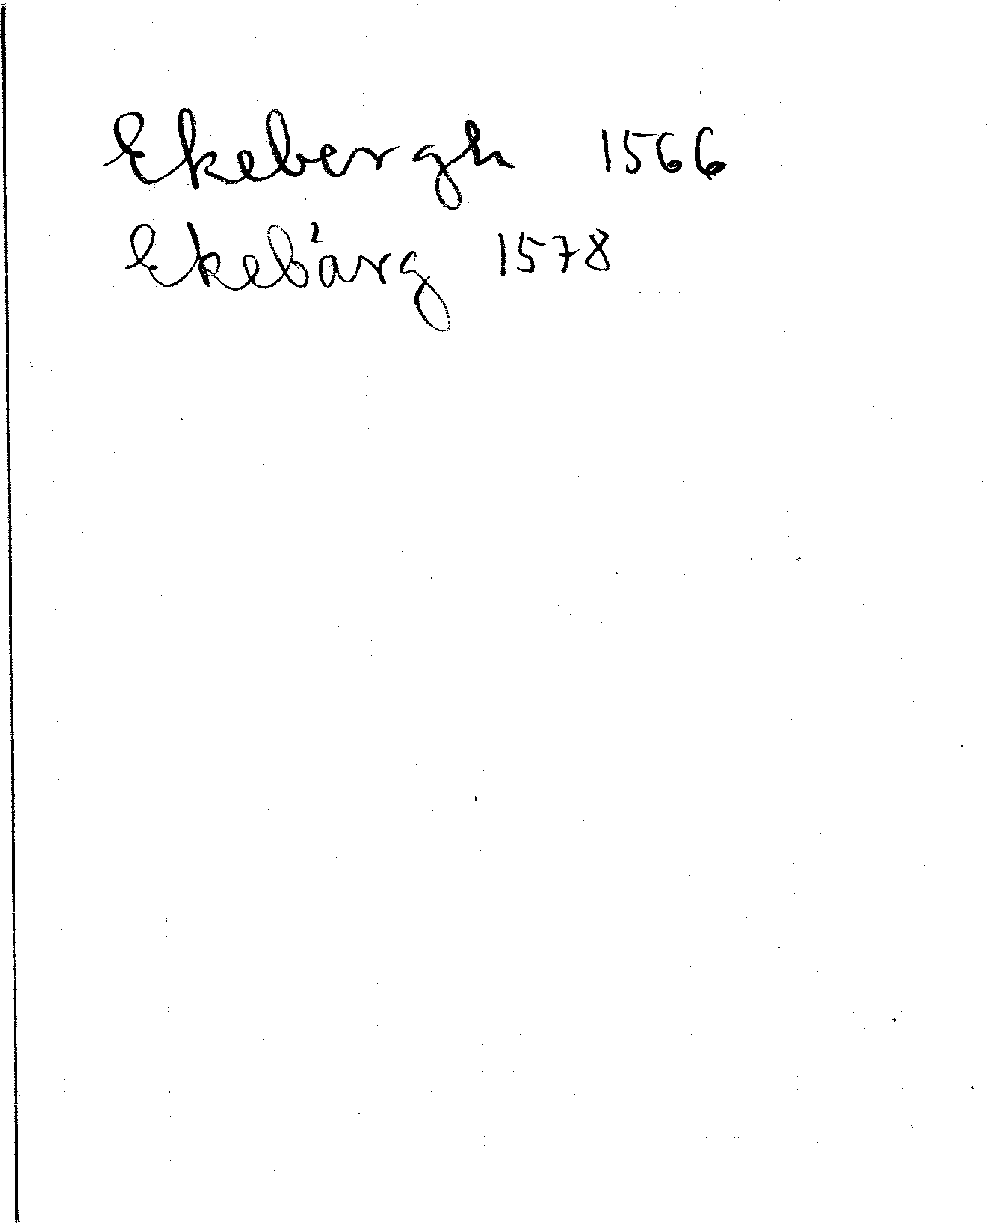 Ekebergh 1566
Ekebårg 1578